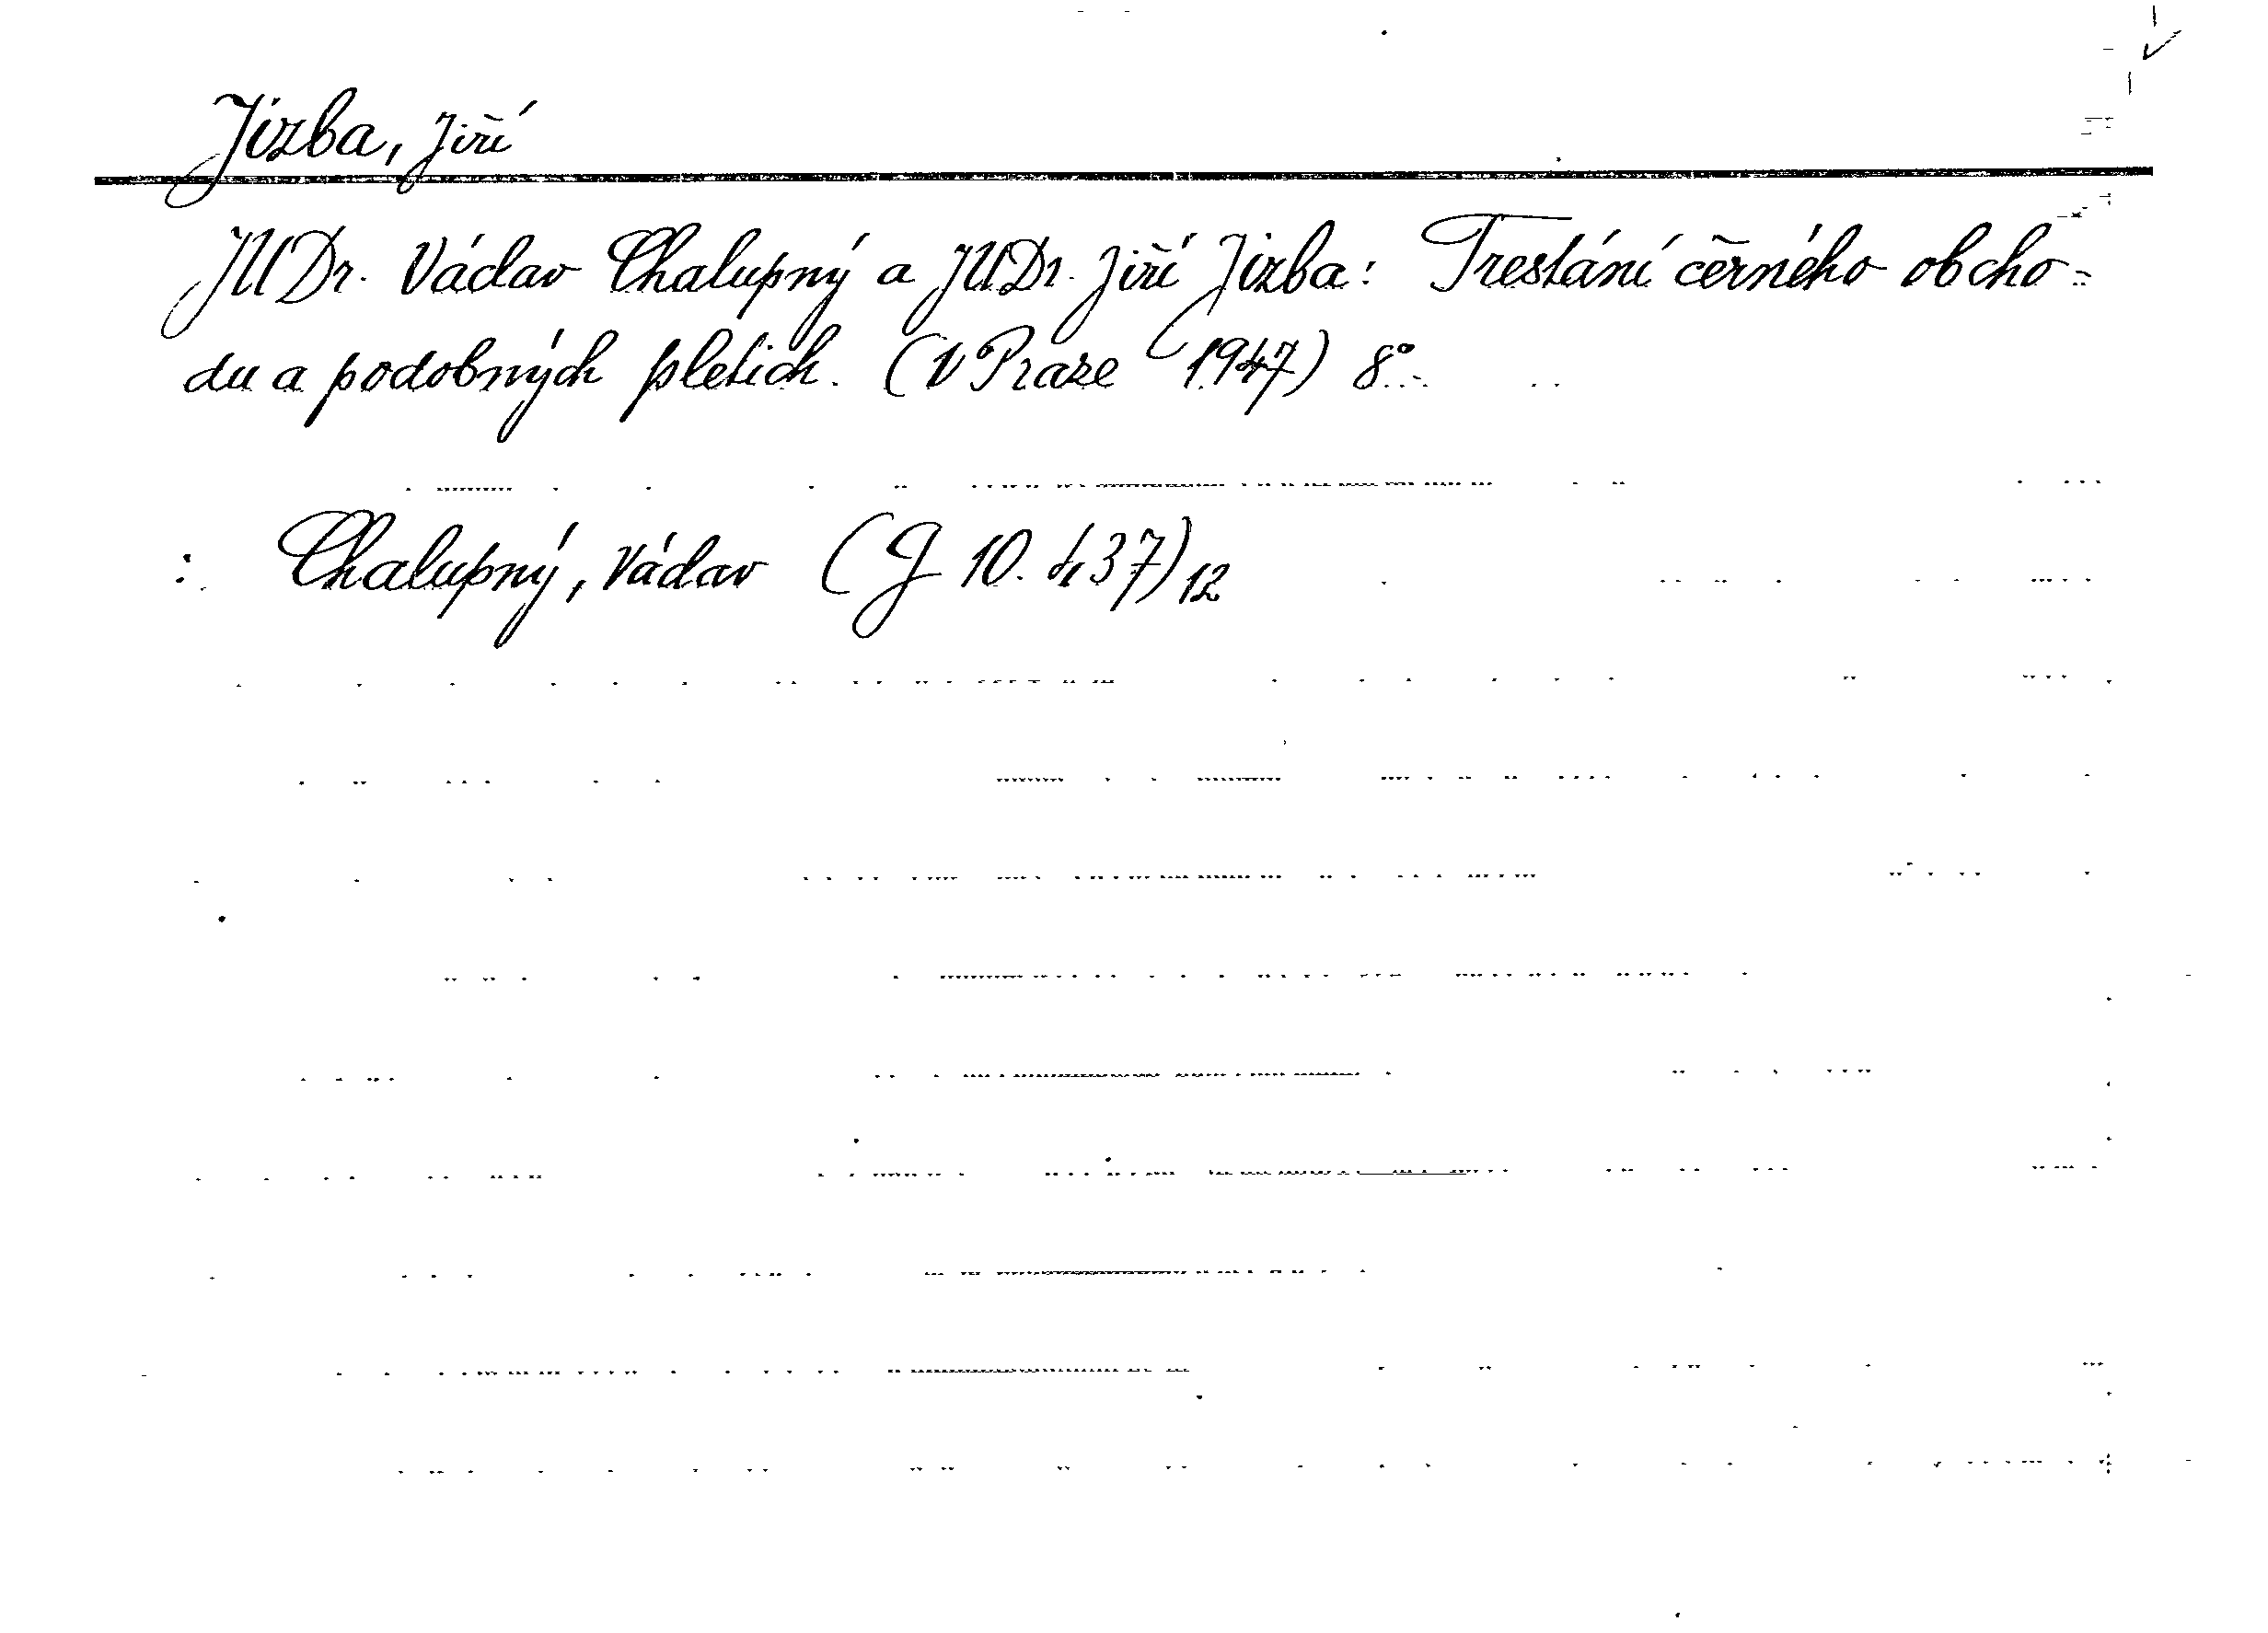 Jizba, Jiří
JUDr. Václav Chalupný a JUDr. Jiří Jizba: Trestání černého obcho-
du a podobných pletich. (V Praze 1947) 8°.
: Chalupný, Václav (J 10.437)12